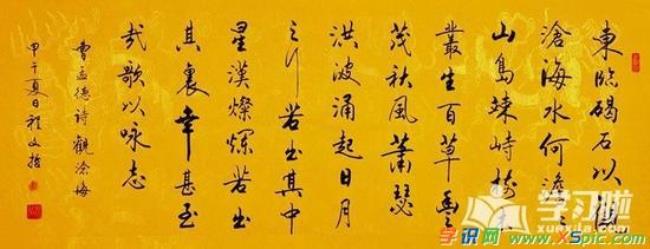 東臨碣石以觀
滄海水何澹〻
山島竦峙樹木
叢生百草豐
茂秋風蕭瑟
洪波涌起日月
之行若出其中
星漢燦爛若出
其裏幸甚至
哉歌以咏志
曹孟德詩觀滄海
甲午夏日程文
学习啦
学识网 www.XSpic.com